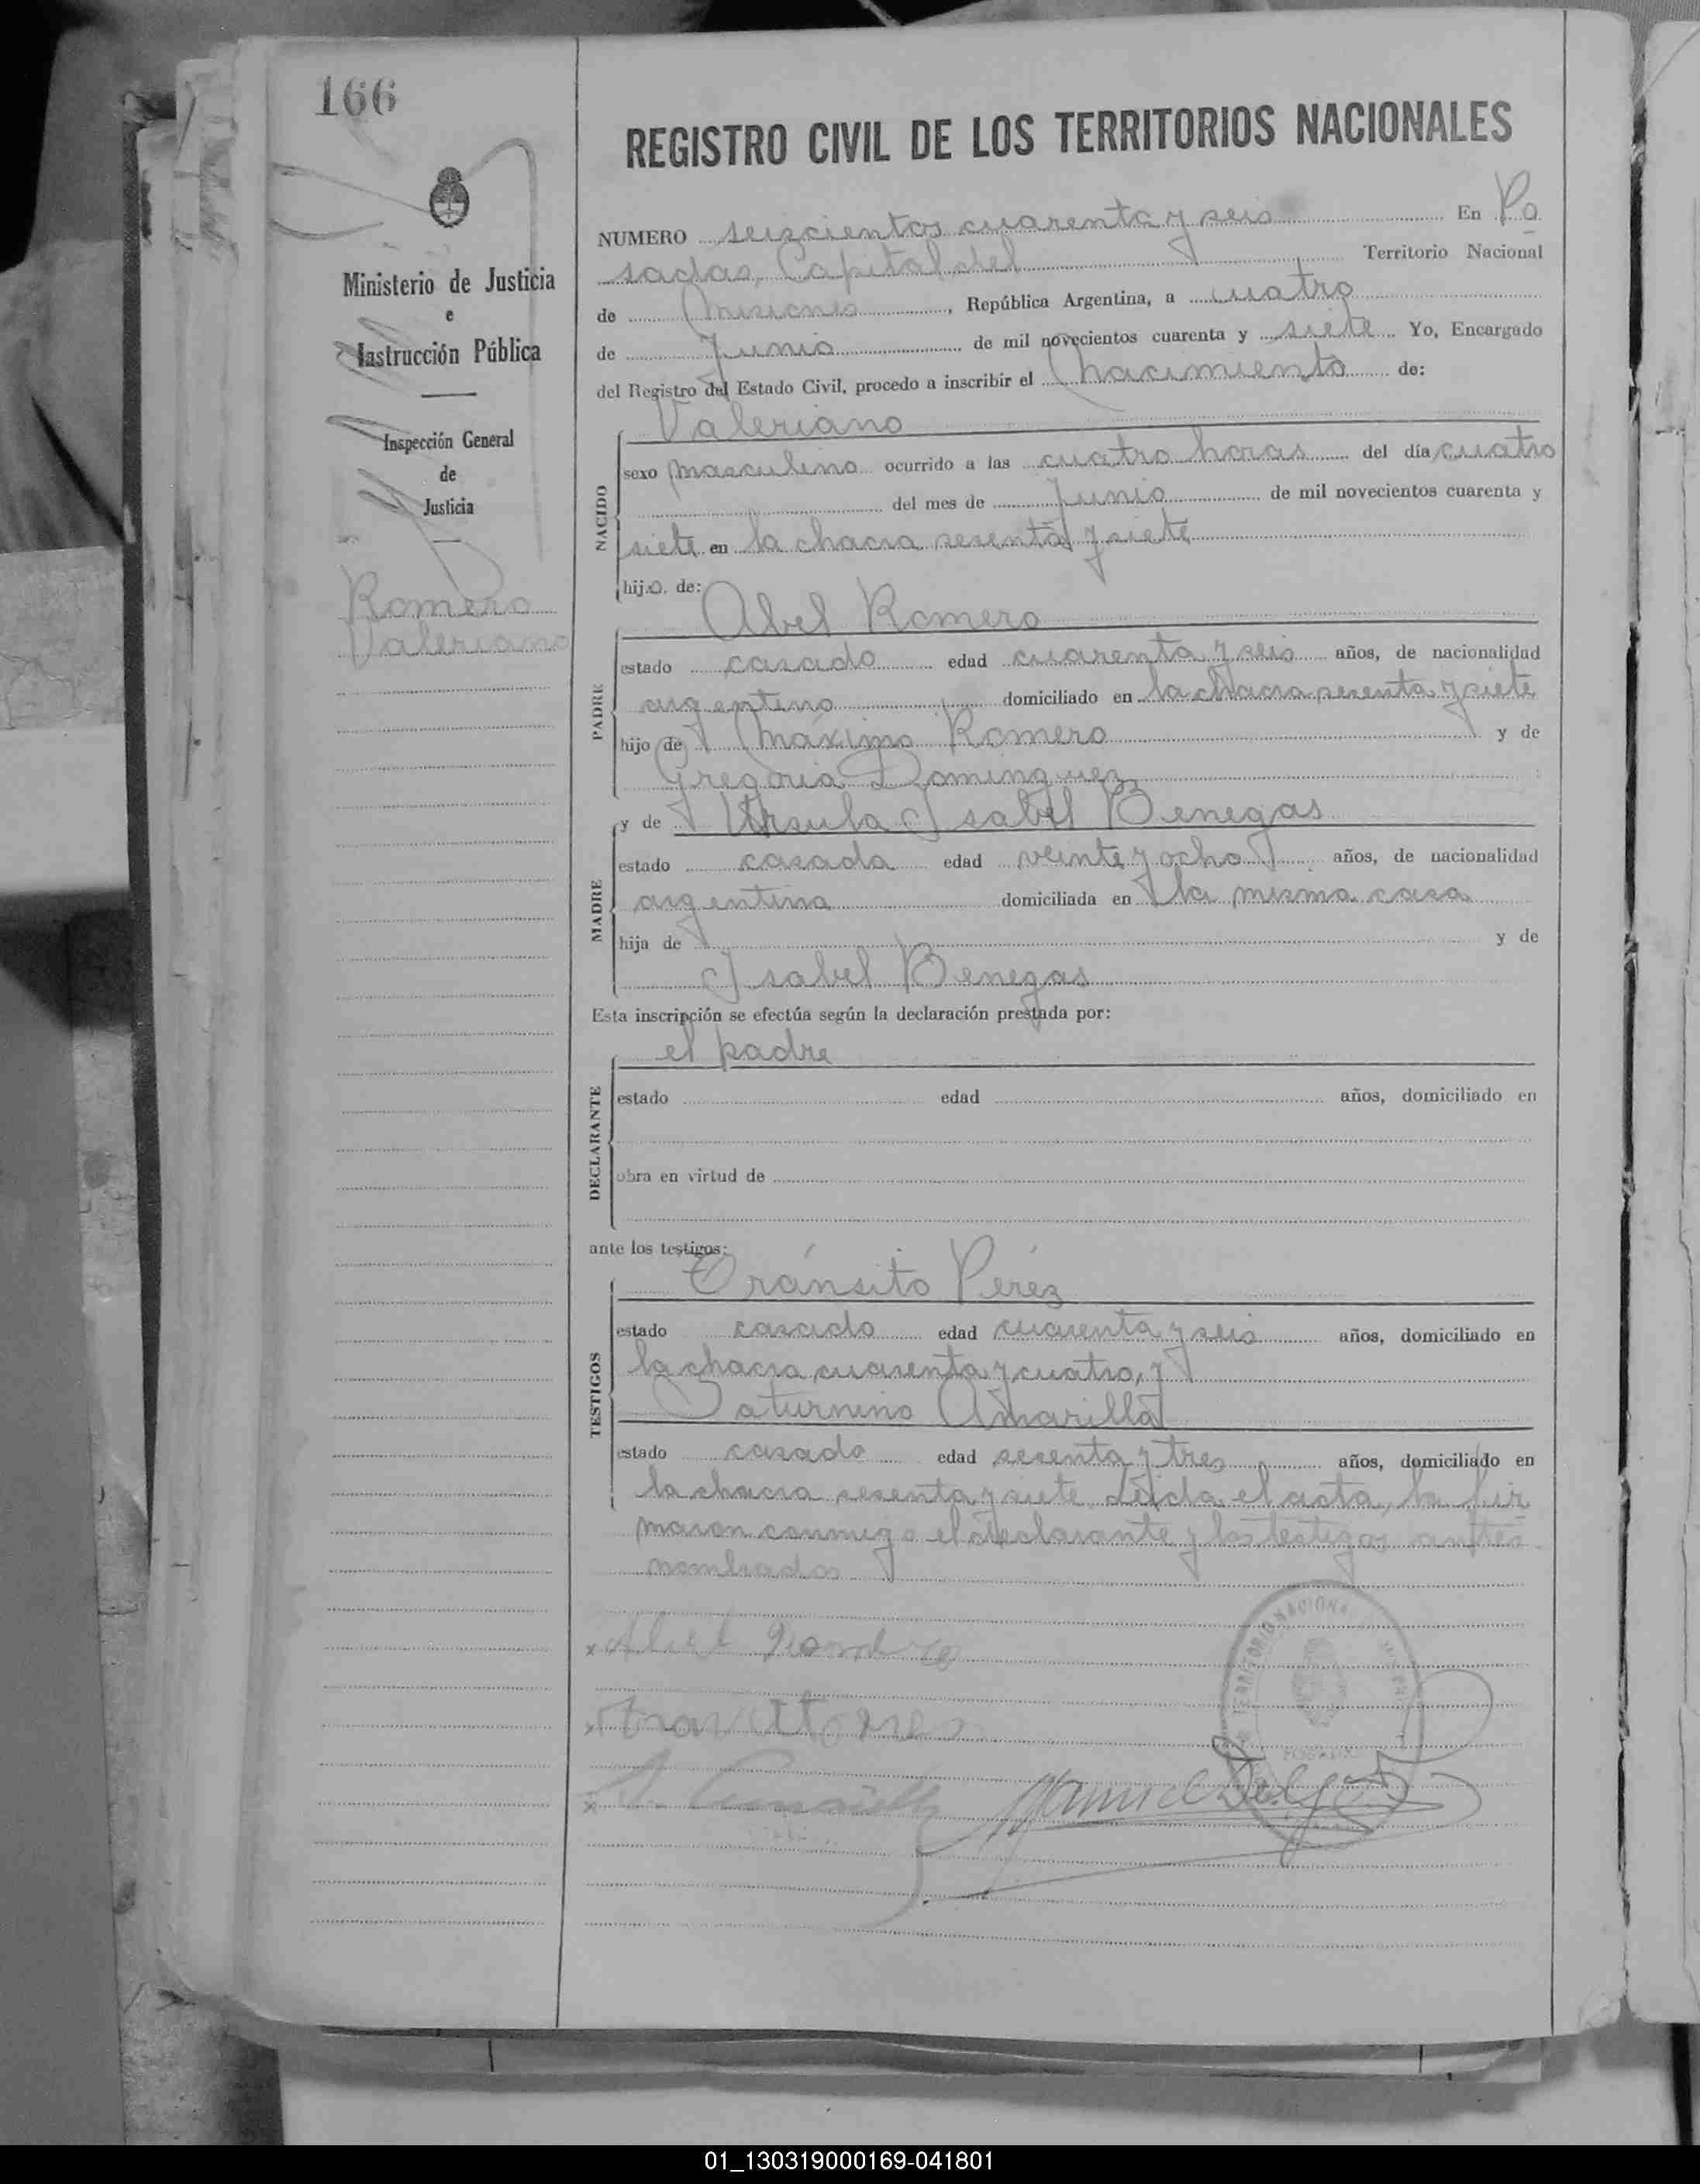 166
REGISTRO CIVIL DE LOS TERRITORIOS NACIONALES
NUMERO seizcientos cuarenta y seis En Po
sadas, Capital del Territorio Nacional
de Misiones, República Argentina, a cuatro
de Junio de mil novecientos cuarenta y siete Yo, Encargado
del Registro del Estado Civil, procedo a inscribir el nacimiento de:
Ministerio de Justicia
e
Instrucción Pública
Inspección General
de
Justicia
Romero
Valeriano
NACIDO
Valeriano
sexo masculino ocurrido a las cuatro horas del día cuatro
del mes de Junio de mil novecientos cuarenta y
siete en la chacra sesenta y siete
hijo de:
PADRE
Abel Romero
estado casado edad cuarenta y seis años, de nacionalidad
argentino domiciliado en la chacra sesenta y siete
hijo de Máximo Romero y de
Gregoria Dominguez
MADRE
y de Ursula Isabel Benegas
estado casada edad veinte y ocho años, de nacionalidad
argentina domiciliada en la misma casa
hija de y de
Isabel Benegas
Esta inscripción se efectúa según la declaración prestada por:
DECLARANTE
el padre
estado edad años, domiciliado en
obra en virtud de
ante los testigos:
TESTIGOS
Tránsito Pérez
estado casado edad cuarenta y seis años, domiciliado en
la chacra cuarenta y cuatro, y
Saturnino Amarilla
estado casado edad sesenta y tres años, domiciliado en
la chacra sesenta y siete. Leída el acta, la fir
maron conmigo el declarante y los testigos antes
nombrados
x Abel Romero
x
x
TERRITORIO NACIONAL
POSADAS
Manuel
01_130319000169-041801